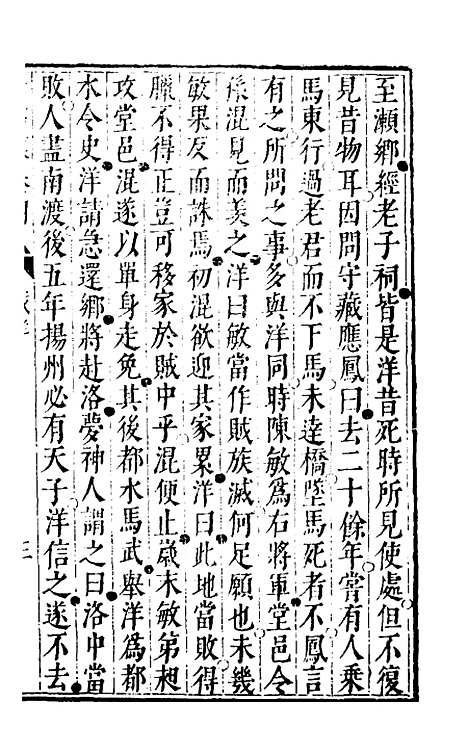 至瀬郷經老子祠皆是洋昔死時所見使處但不復
見昔物耳因問守藏應鳳曰去二十餘年嘗有人乗
馬東行過老君而不下馬未達橋墜馬死者不鳳言
有之所問之事多與洋同時陳敏爲右將軍堂邑令
孫混見而羡之洋曰敏當作賊族滅何足願也未幾
敏果反而誅焉初混欲迎其家累洋曰此地當敗得
臘不得正豈可移家於賊中乎混便止歲末敏弟昶
攻堂邑混遂以單身走免其後都水馬武舉洋爲都
水令史洋請急還郷將赴洛夢神人謂之曰洛中當
敗人盡南渡後五年揚州必有天子洋信之遂不去
三